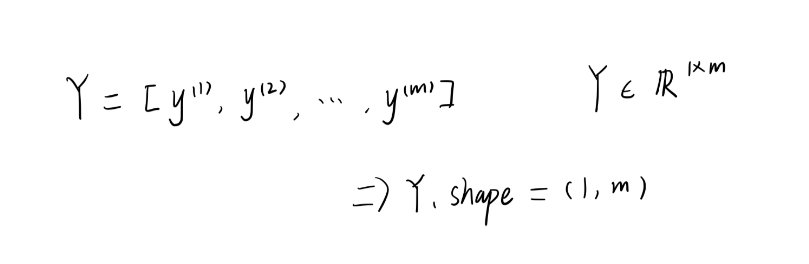 Y = [y⁽¹⁾, y⁽²⁾, ⋯, y⁽ᵐ⁾] Y ∈ ℝ¹ˣᵐ
⇒ Y.shape = (1, m)